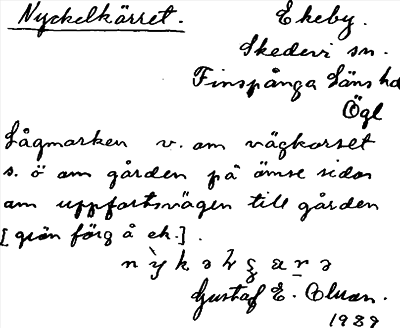 Nyckelkärret.
Ekeby.
Skedevi sn.
Finspånga Läns hd
Ögl
Lågmarken v. om vägkorset
s. ö om gården på ömse sidor
om uppfartsvägen till gården
[grön färg å ek.].
Gustaf E.
1939